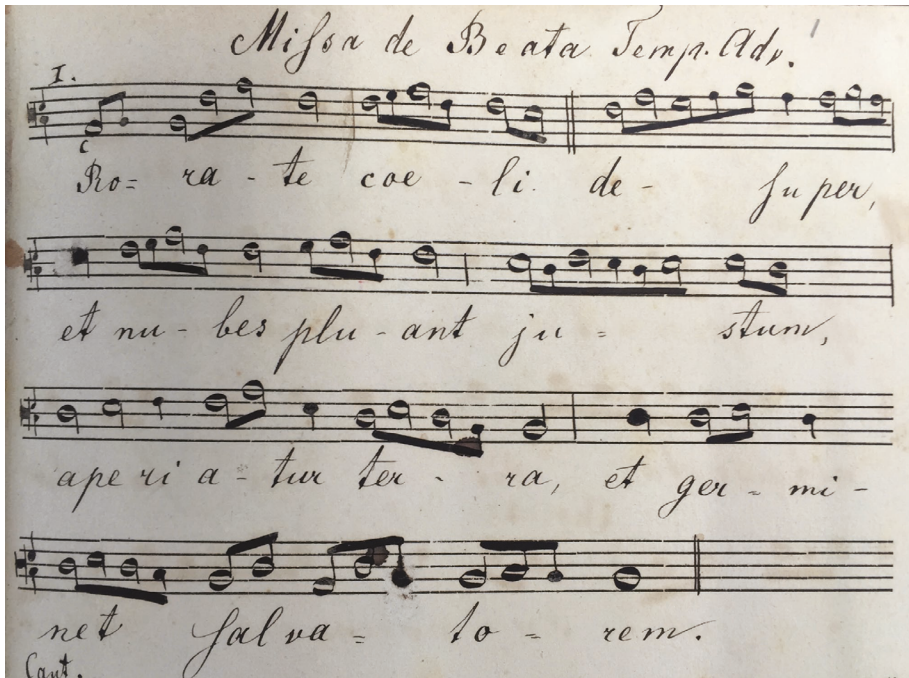 Missa de Beata Temp. Adv.
I.
C
Ro= ra - te coe - li. de - super,
et nu - bes plu - ant ju = stum,
ape ri a - tur ter - ra, et ger = mi -
net salva = to = rem.
Cant.